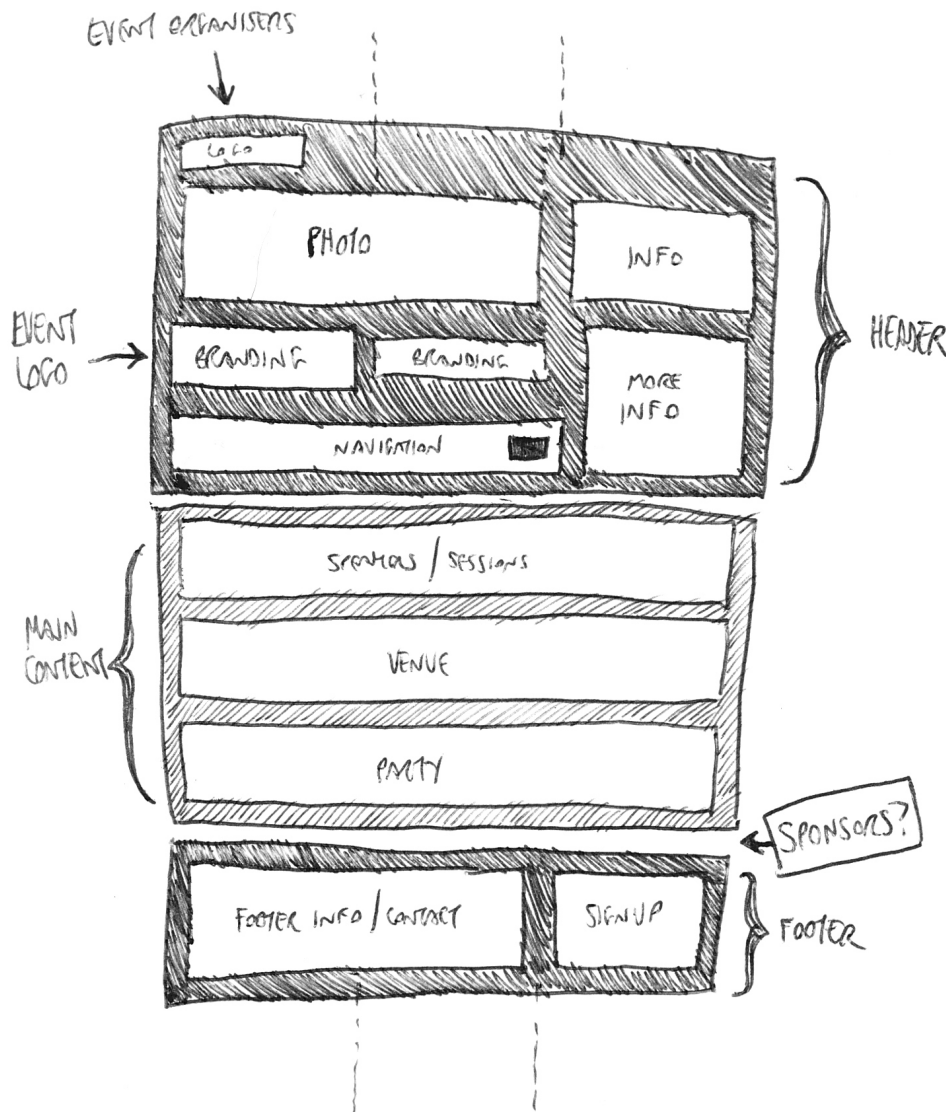 EVENT ORGANISERS
LOGO
PHOTO
INFO
EVENT
LOGO
BRANDING
BRANDING
MORE
INFO
HEADER
NAVIGATION
SPEAKERS / SESSIONS
MAIN
CONTENT
VENUE
PARTY
SPONSORS?
FOOTER INFO / CONTACT
SIGNUP
FOOTER